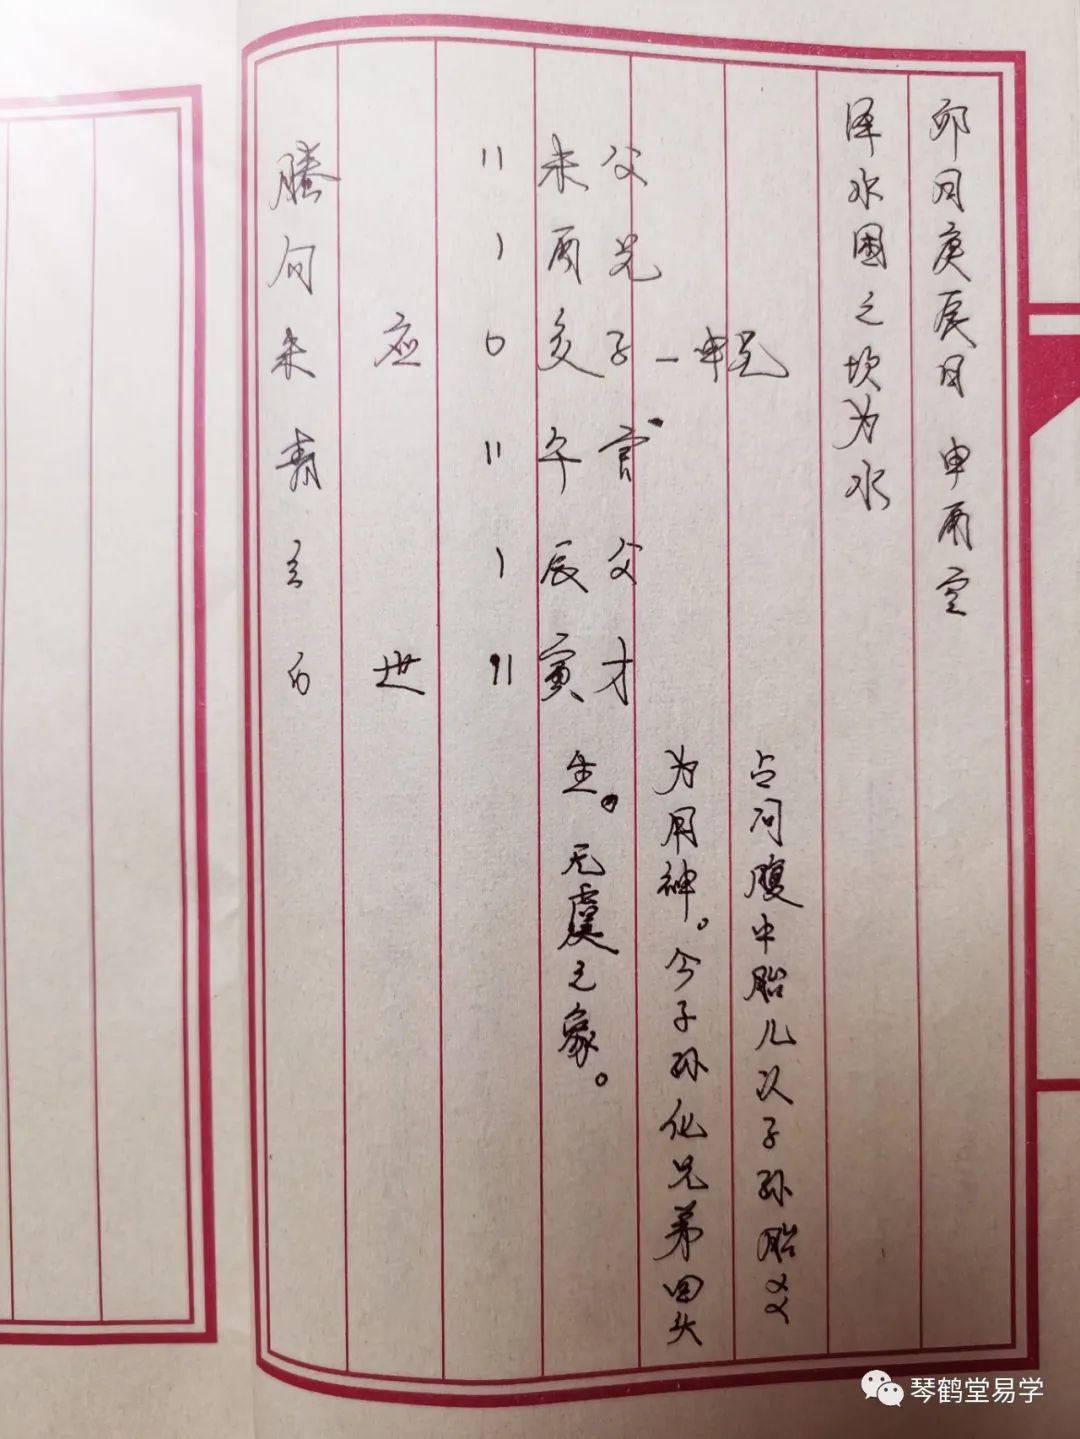 卯月庚辰日 申酉空
泽水困之坎为水
申兄
父兄子官父才
未酉亥午辰寅
〃 、 O 〃 、 〃
应 世
腾勾朱青玄白
占问腹中胎儿以子孙胎爻
为用神。今子孙化兄弟回头
生。无虞之象。
琴鹤堂易学